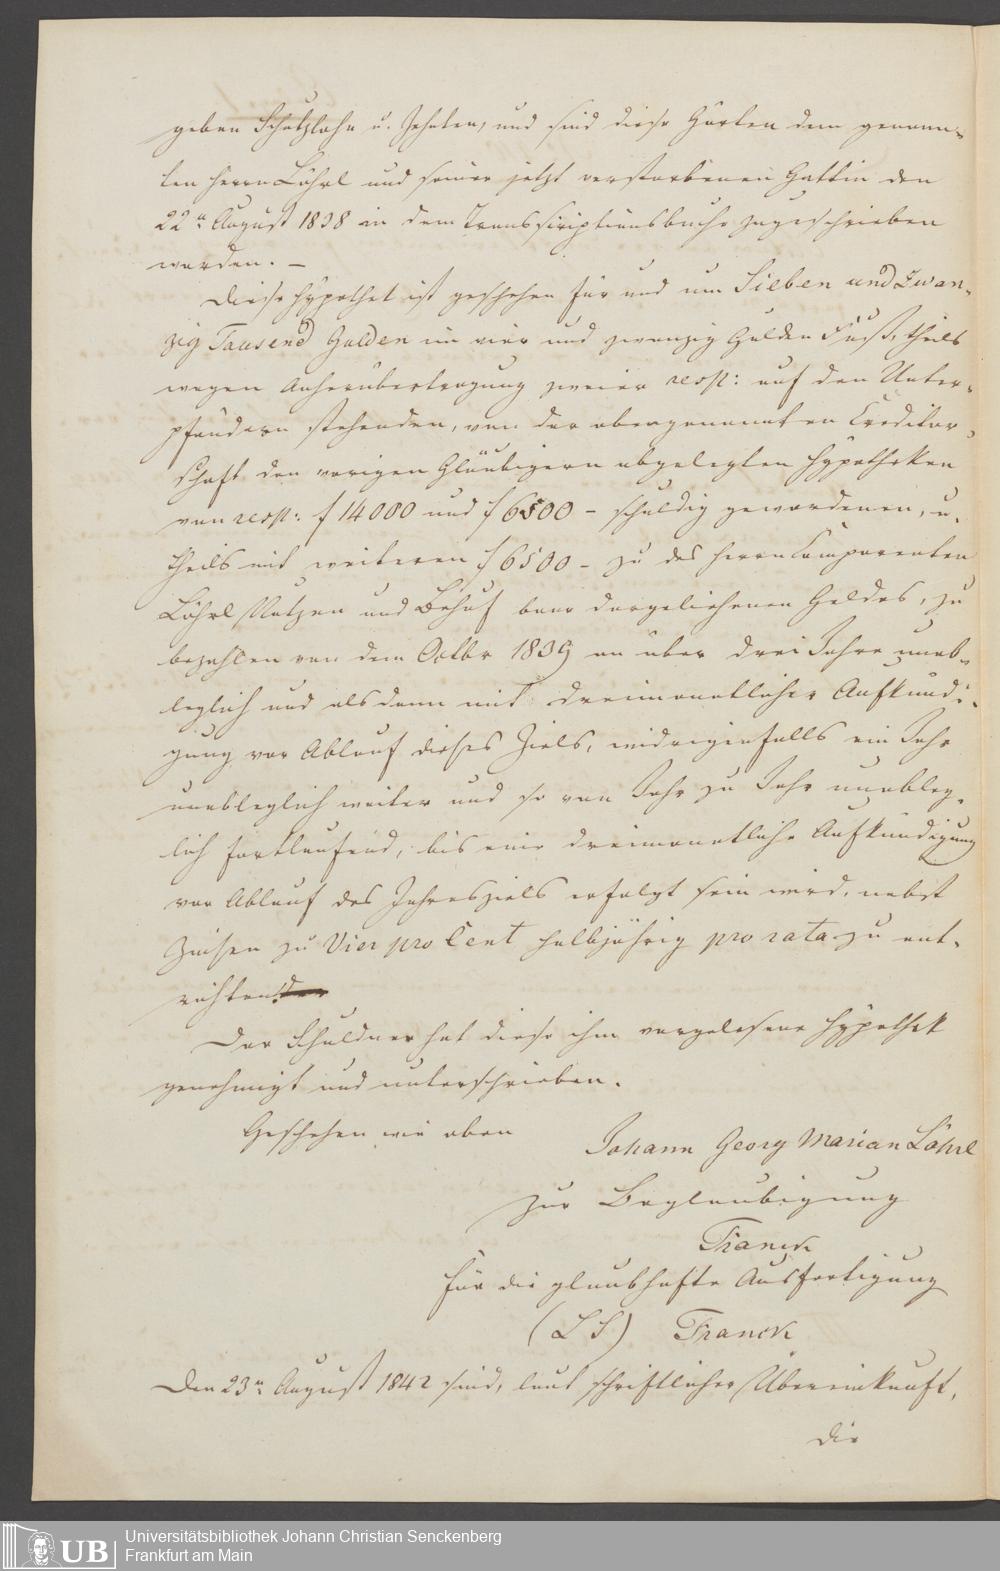 geben Schutzlohn u. Zehnten, und sind diese Gärten dem genann-
ten Herrn Löhrl und seiner jetzt verstorbenen Gattin den
22n August 1838 in dem Transscriptionsbuche zugeschrieben
worden. –
Diese Hypothek ist geschehen für und um Sieben und Zwan-
zig Tausend Gulden im vier und zwanzig Gulden Fuß, theils
wegen Anherübertragung zweier resp: auf den Unter-
pfändern stehenden, von der obengenannten Creditor-
schaft den vorigen Gläubigern abgelegten Hypotheken
von resp: f 14000 und f 6500 – schuldig gewordenen, u.
theils mit weiteren f 6500 – zu des Herrn Comparenten
Löhrl Nutzen und Behuf baar dargeliehenen Geldes, zu
bezahlen von dem Octbr 1839 an über drei Jahre unab-
leglich und alsdann mit dreimonatlicher Aufkündi-
gung vor Ablauf dieses Ziels, widrigenfalls ein Jahr
unableglich weiter und so von Jahr zu Jahr unableg-
lich fortlaufend, bis eine dreimonatliche Aufkündigung
vor Ablauf des Jahresziels erfolgt sein wird, nebst
Zinsen zu Vier pro Cent halbjährig pro rata zu ent-
richten.
Der Schuldner hat diese ihm vorgelesene Hypothek
genehmigt und unterschrieben.
Geschehen wie oben
Johann Georg Marian Löhrl
Zur Beglaubigung
Franck
Für die glaubhafte Ausfertigung
(L S) Franck
Den 23n August 1842 sind, laut schriftlicher Übereinkunft,
die
UB
Universitätsbibliothek Johann Christian Senckenberg
Frankfurt am Main